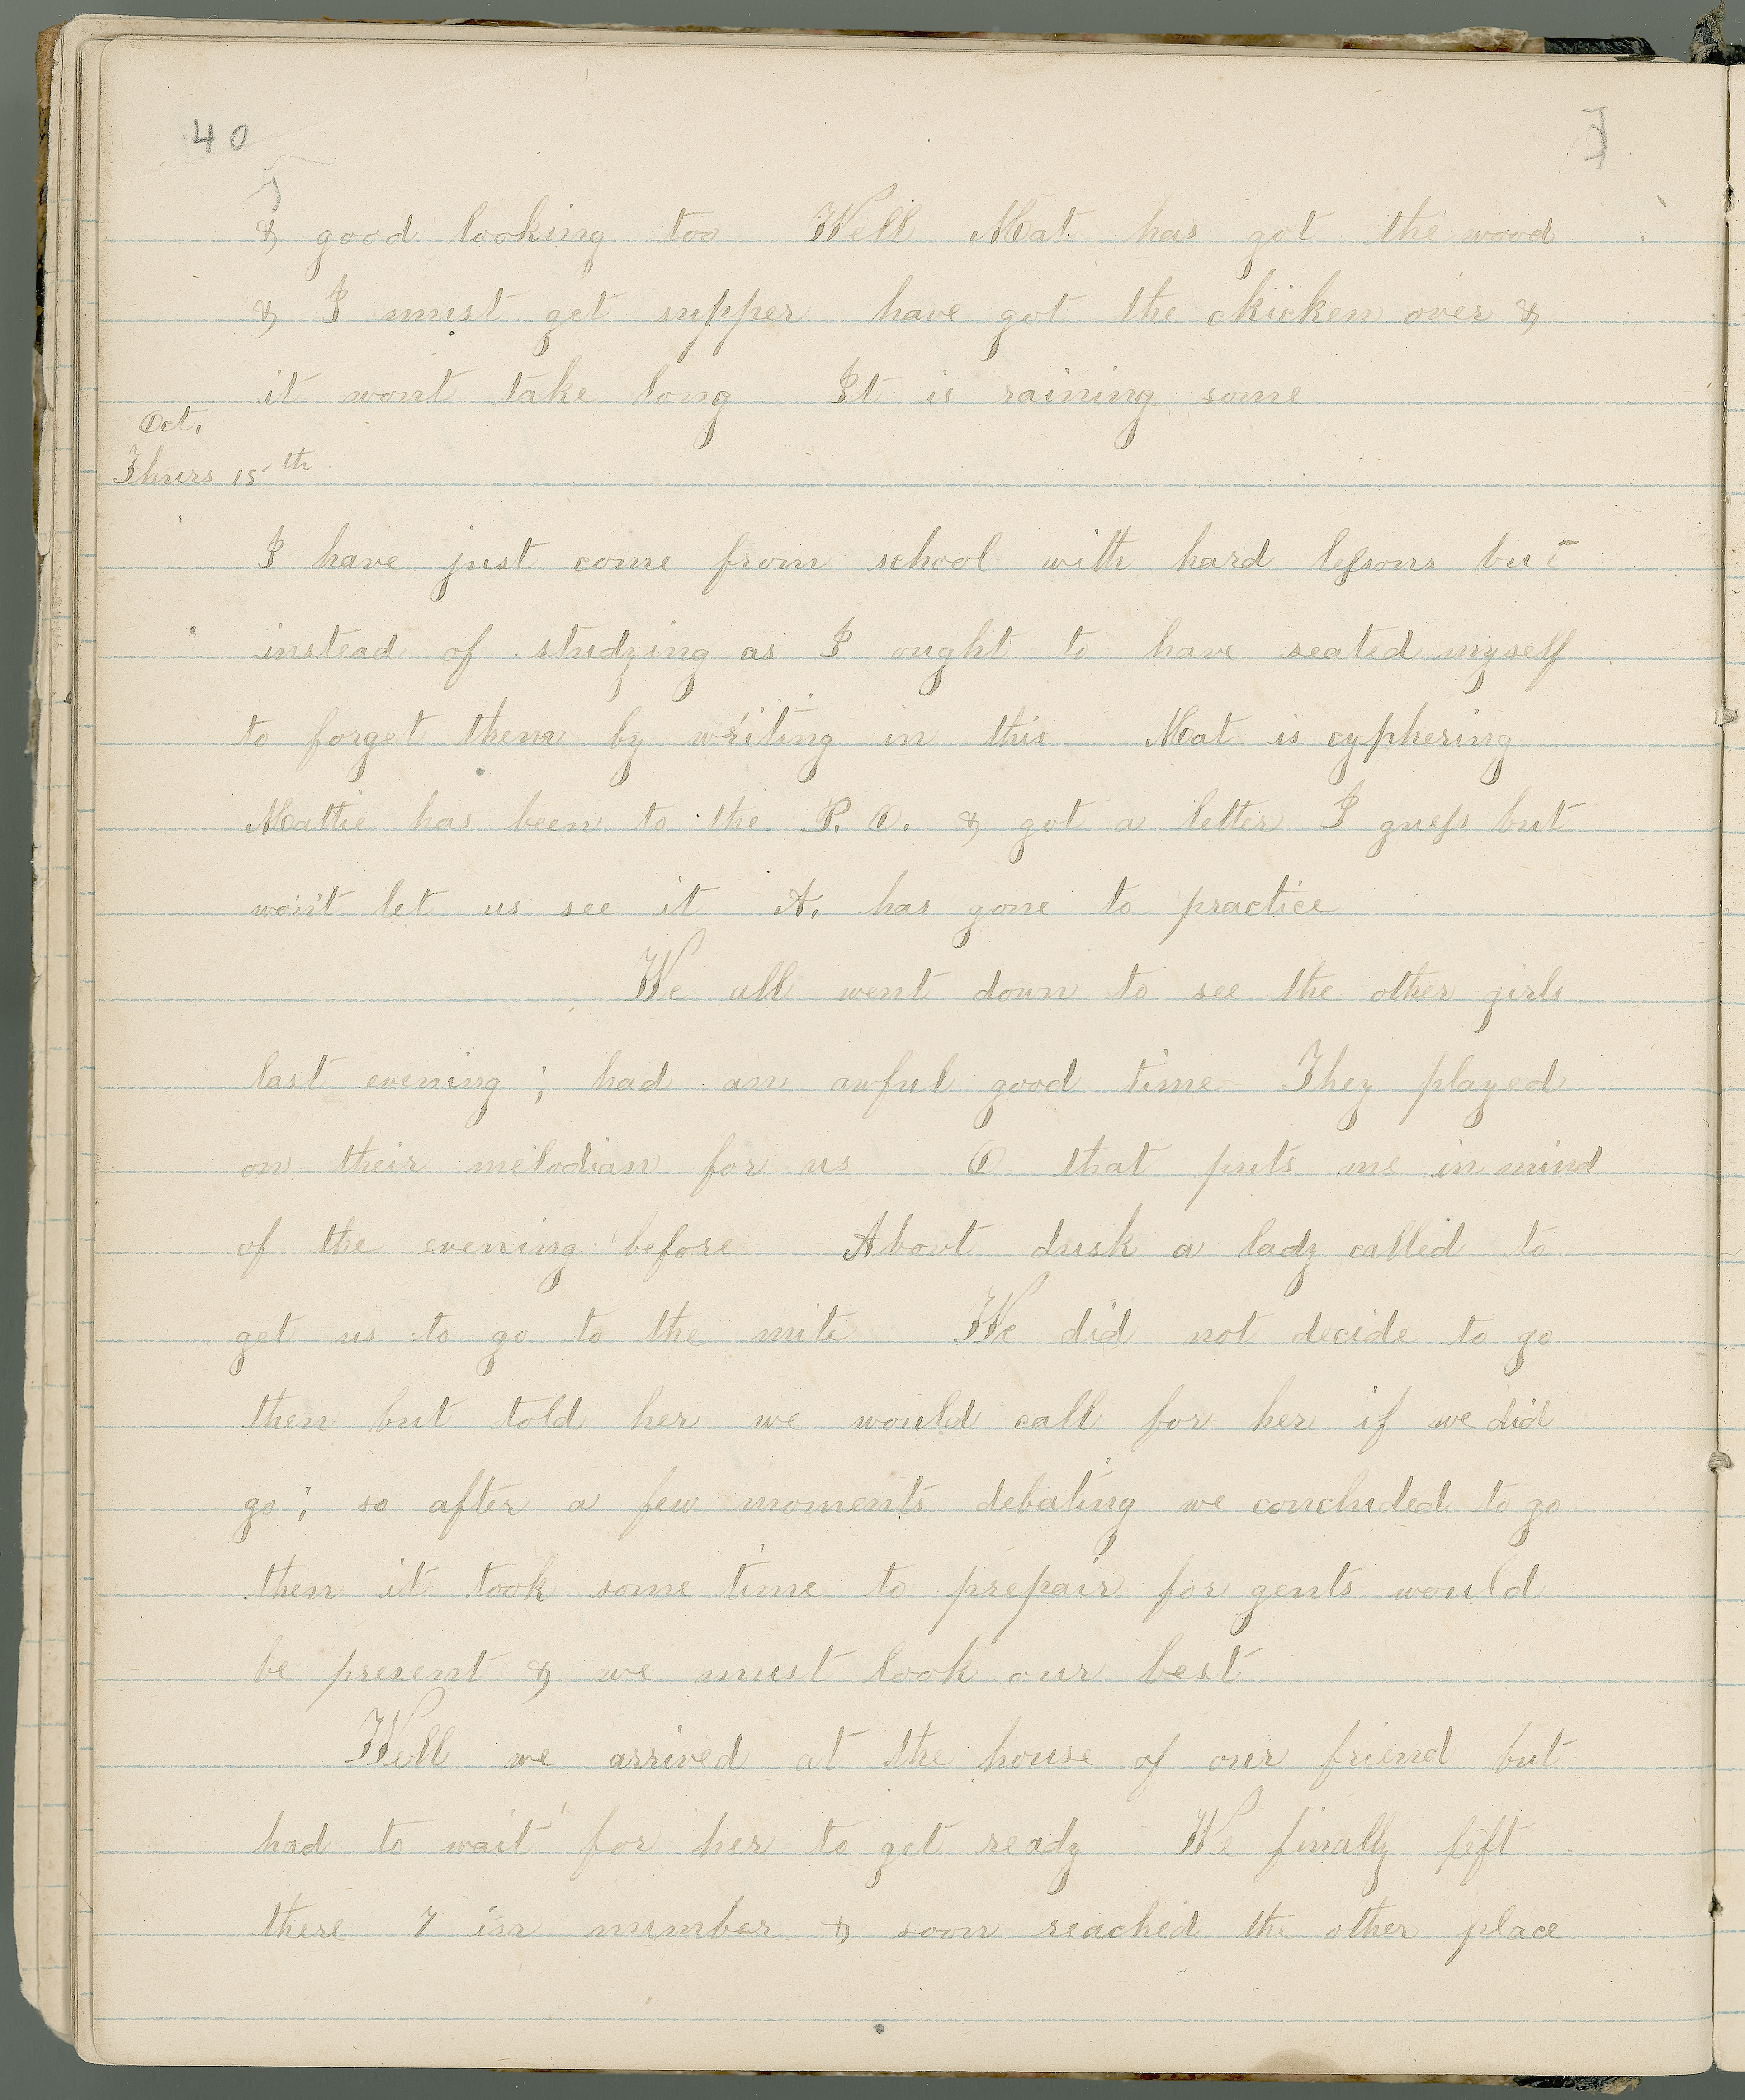 40
& good looking too Well Mat has got the wood
& I must get supper have got the chicken over &
it wont take long It is raining some
Oct.
Thurs 15th
I have just come from school with hard lessons but
instead of studying as I ought to have seated myself
to forget them by writing in this Mat is cyphering
Mattie has been to the P. O. & got a letter I guess but
won't let us see it A. has gone to practice
We all went down to see the other girls
last evening ; had an awful good time They played
on their melodian for us O that puts me in mind
of the evening before About dusk a lady called to
get us to go to the mite We did not decide to go
then but told her we would call for her if we did
go ; so after a few moments debating we concluded to go
then it took some time to prepair for gents would
be present & we must look our best
Well we arrived at the house of our friend but
had to wait for her to get ready We finally left
there 7 in number & soon reached the other place